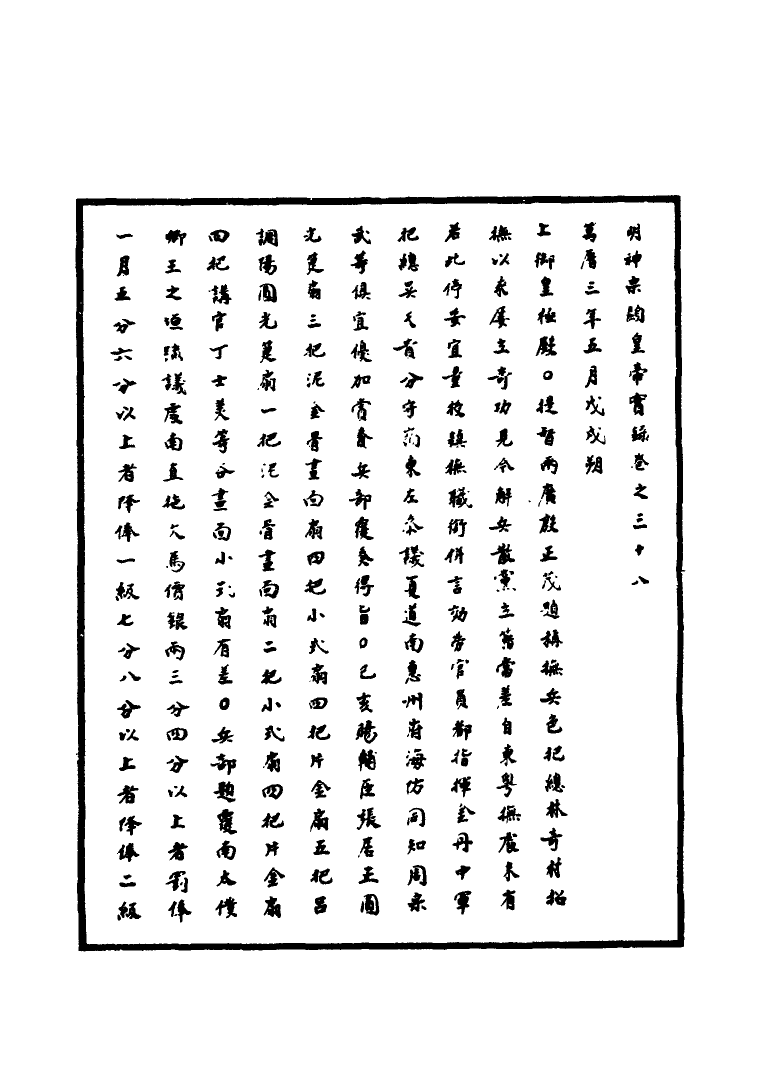 明神宗顯皇帝實錄卷之三十八
萬曆三年五月戊戌朔
上御皇極殿○提督兩廣殷正茂題稱撫兵色把總林奇材招
撫以來屢立奇功見今解兵散黨立籍當差自東粵撫處未有
若此停妥宜量授鎮撫職銜併言効勞官員都指揮金丹中軍
把總吳天首分守嶺東左叅議夏道南惠州府海防同知周宗
武等俱宜優加賞賚兵部覆奏得旨○己亥賜輔臣張居正圓
光蓖扇三把泥金骨畫面扇四把小式扇四把片金扇五把呂
調陽圓光蓖扇一把泥金骨畫面扇二把小式扇四把片金扇
四把講官丁士美等各畫面小式扇有差○兵部題覆南太僕
卿王之垣疏議處南直拖欠馬價銀兩三分四分以上者罰俸
一月五分六分以上者降俸一級七分八分以上者降俸二級